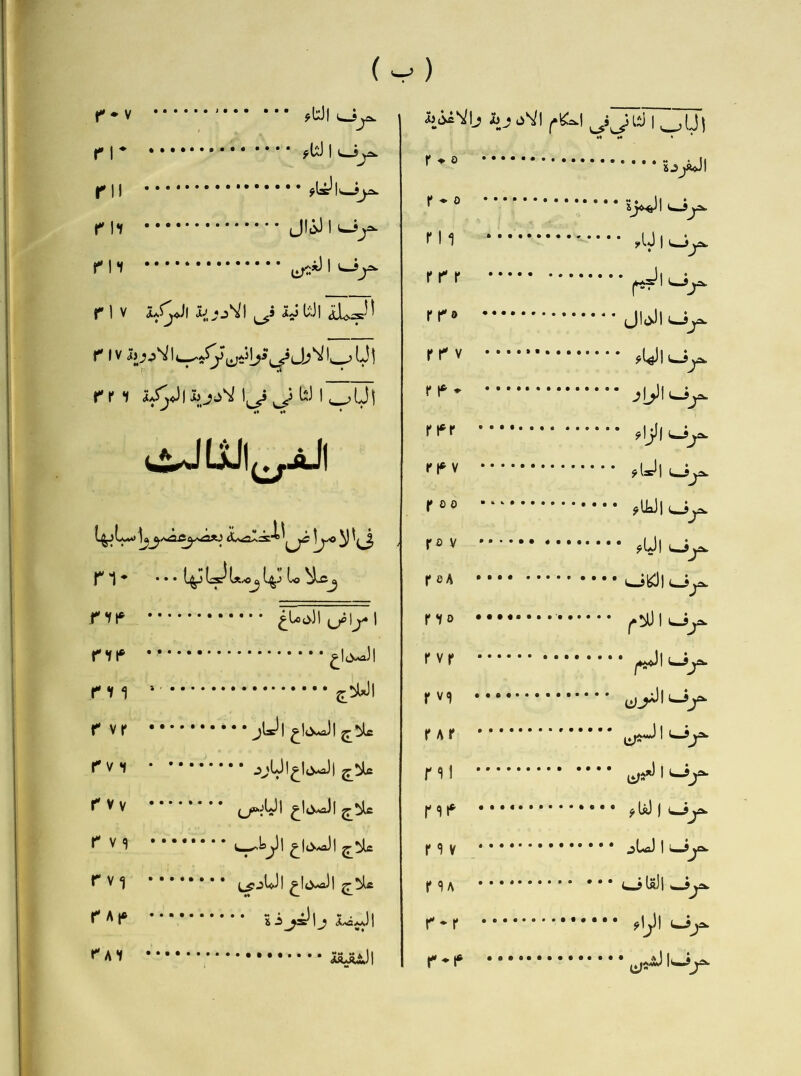 ( ب )
الباب الثاني في احكام الادوية والاغذية
المفردة ٢٠٥
حرف الهمزة ٢٠٥
حرف الباء ٢١٩
حرف الجيم ٢٣٢
حرف الدال ٢٣٥
حرف الهاء ٢٣٧
حرف الواو ٢٤٠
حرف الزاء ٢٤٢
حرف الحاء ٢٤٧
حرف الطاء ٢٥٥
حرف الياء ٢٥٧
حرف الكاف ٢٥٨
حرف اللام ٢٦٥
حرف الميم ٢٧٢
حرف النون ٢٧٩
حرف السين ٢٨٢
حرف العين ٢٩١
حرف الفاء ٢٩٤
حرف الصاد ٢٩٧
حرف القاف ٢٩٨
حرف الراء ٣٠٢
حرف الشين ٣٠٤
حرف التاء ٣٠٧
حرف الثاء ٣١٠
حرف الخاء ٣١١
حرف الذال ٣١٦
حرف الغين ٣١٦
الجملة الثانية في الادوية المركبة ٣١٧
الباب الاول في قوانين تركيب الادوية ٣١٧
الباب الثاني في الادوية المركبة ٣٢٦
الفن الثالث
في الامراض المختصة بعضو عضو واسبابها
وعلاماتها ومعالجاتها ٣٦٠
امراض الدماغ ٣٦٤
الصداع ٣٦٤
العلاج ٣٦٩
علاج الصداع الحار ٣٧٢
علاج الصداع البارد ٣٧٦
علاج الصداع اليابس ٣٧٧
علاج الصداع الرطب ٣٧٩
علاج الصداع المادي ٣٧٩
البيضة والخوذة ٣٨٤
الشقيقة ٣٨٦